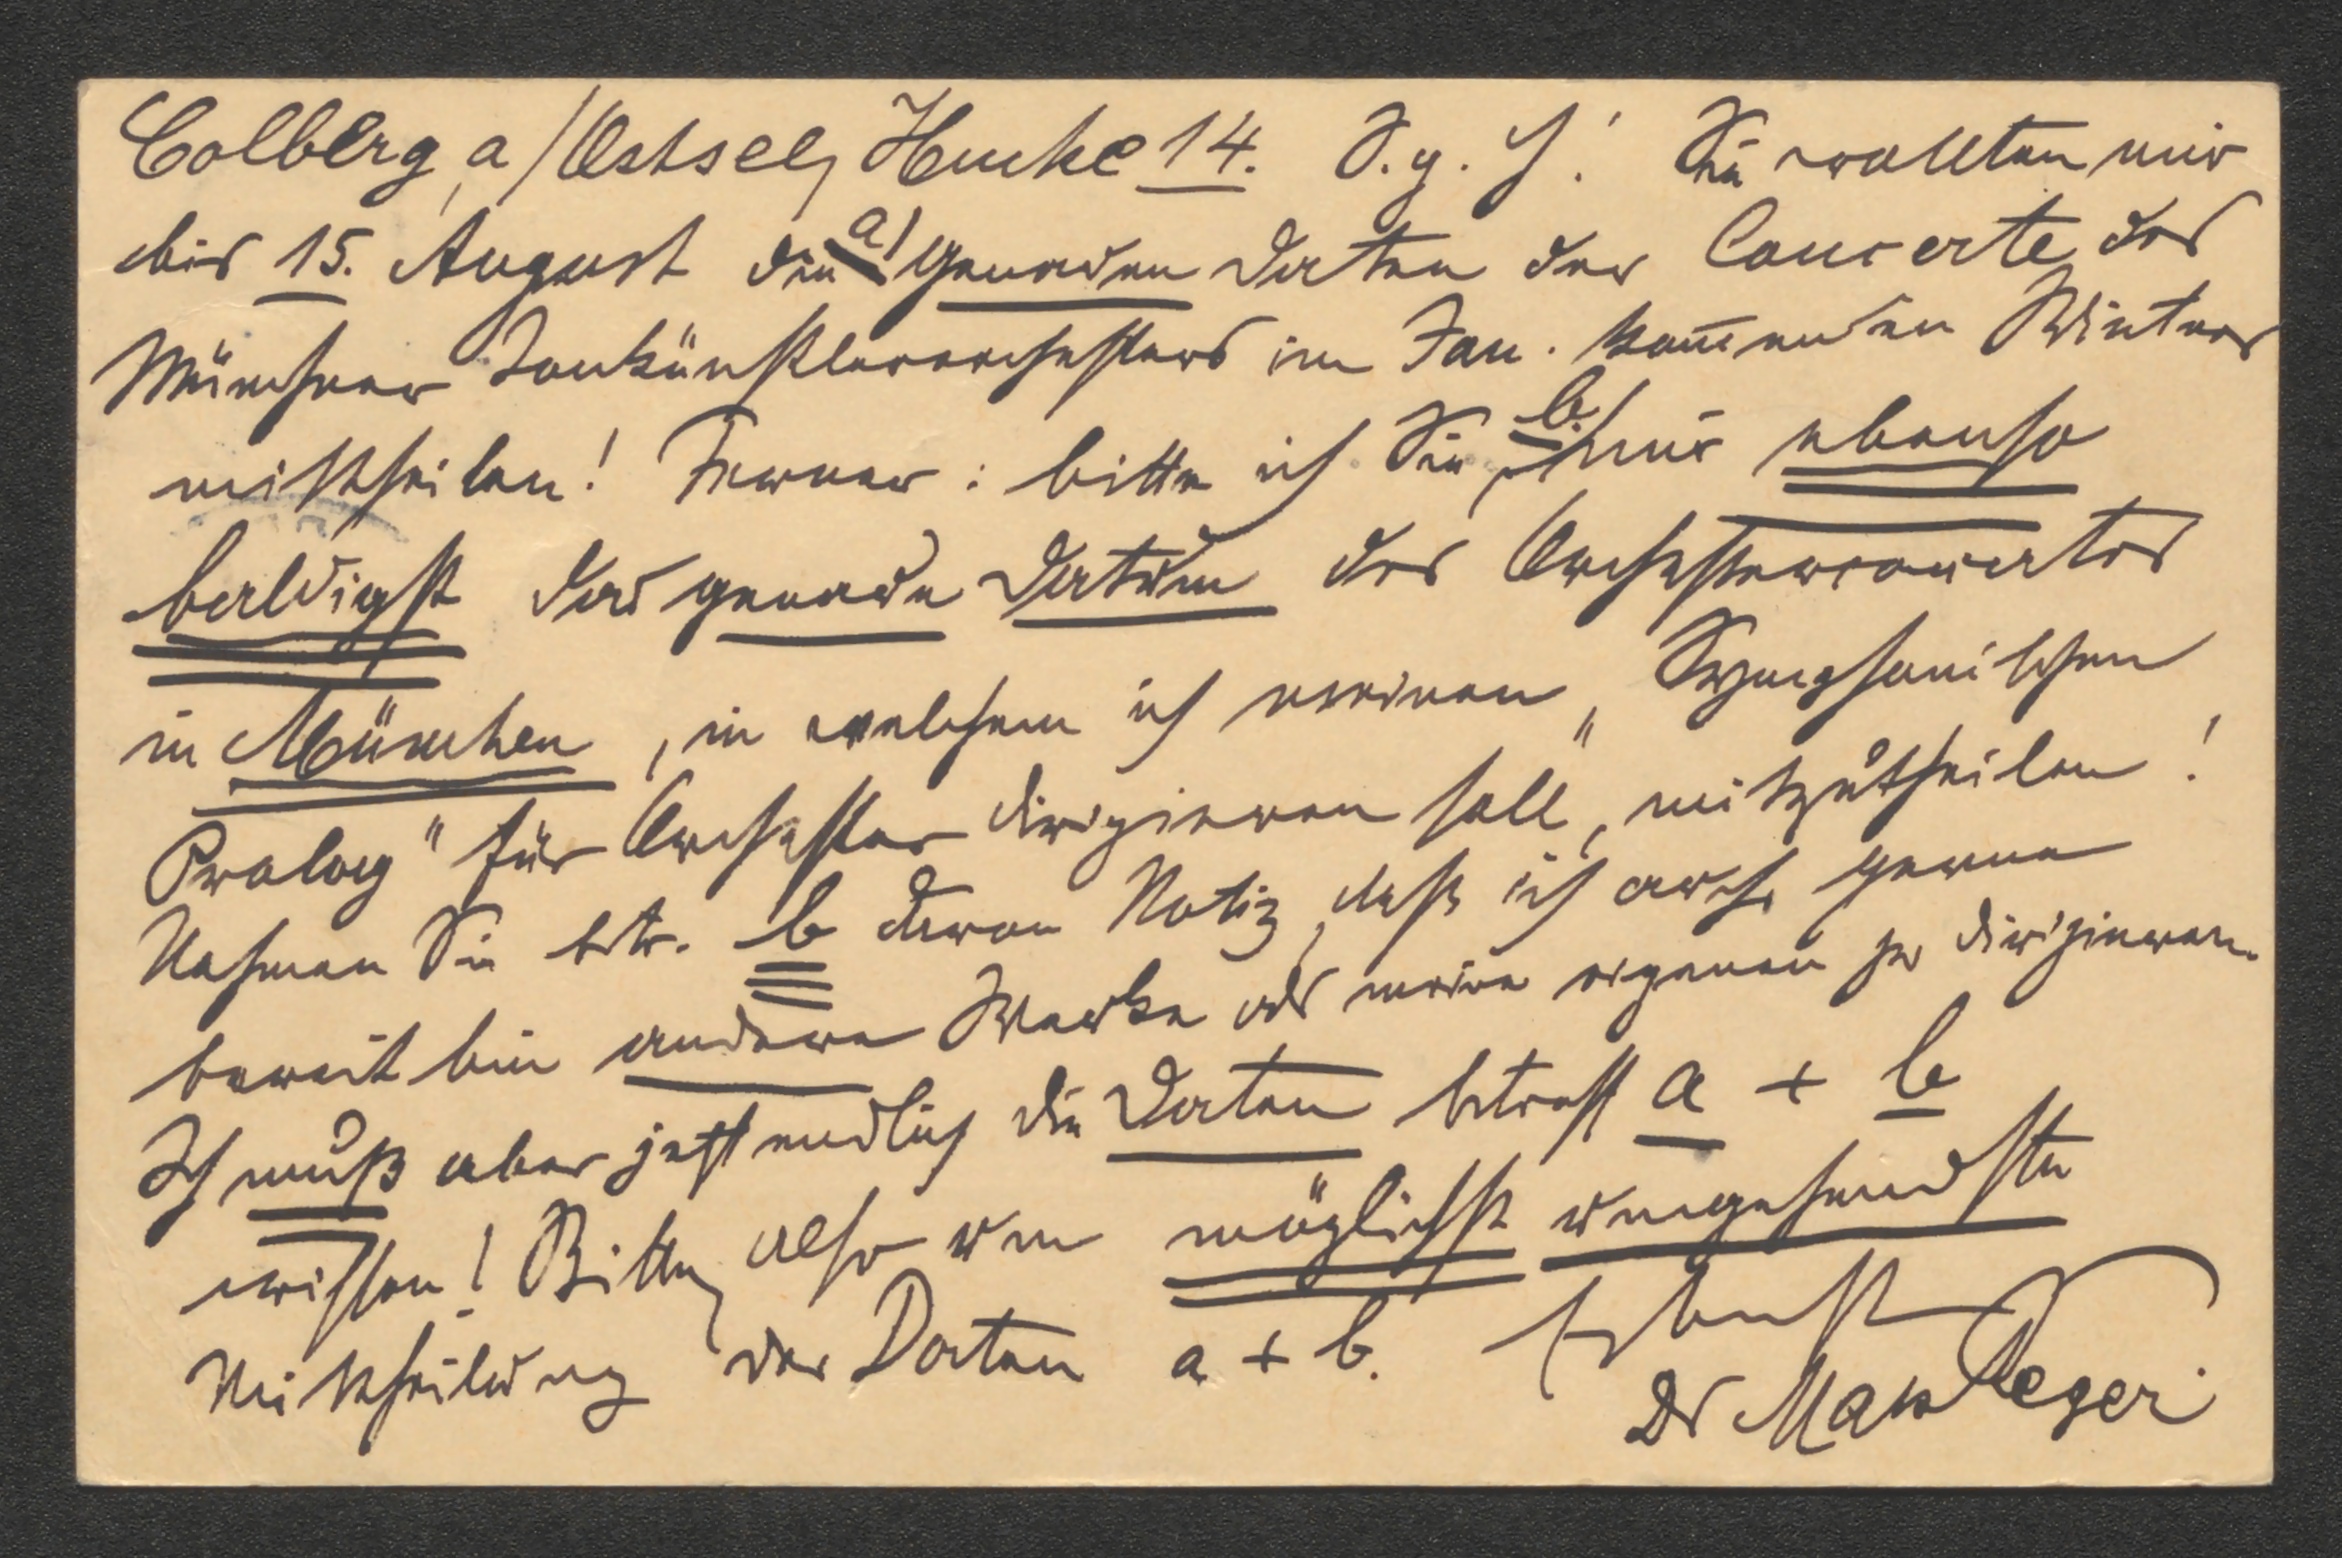 Colberg, a/Ostsee, Hucke 14. S. g. H! Sie wollten mir
bis 15. August die a) genauen Daten der Concerte des
Münchner Tonkünstlerorchesters im Jan. kom̅enden Winters
mittheilen! Ferner: bitte ich Sie, b) mir ebenso
baldigst das genaue Datum des Orchesterconcertes
in München, in welchem ich meinen „Symphonischen
Prolog" für Orchester dirigieren soll, mitzutheilen!
Nehmen Sie btr. b davon Notiz, daß ich auch gerne
bereit bin andere Werke als meine eigenen zu dirigieren.
Ich muß aber jetzt endlich die Daten betreff a + b
wissen! Bitte, also um möglichst umgehendste
Mittheilung der Daten a + b. Ergbenst
Dr Max Reger